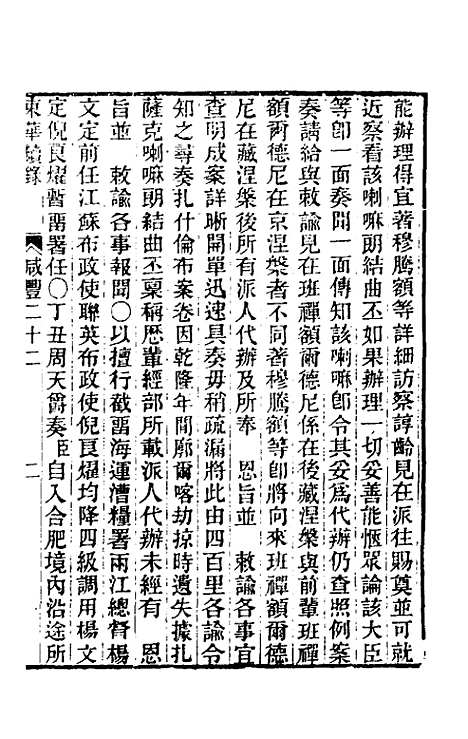 能辦理得宜著穆騰額等詳細訪察諄齡見在派往賜奠並可就
近察看該喇嘛朗結曲丕如果辦理一切妥善能愜眾論該大臣
等卽一面奏聞一面傳知該喇嘛卽令其妥爲代辦仍查照例案
奏請給與敕諭見在班禪額爾德尼係在後藏涅槃與前輩班禪
額爾德尼在京涅槃者不同著穆騰額等卽將向來班禪額爾德
尼在藏涅槃後所有派人代辦及所奉 恩旨並 敕諭各事宜
查明成案詳晰開單迅速具奏毋稍疏漏將此由四百里各諭令
知之尋奏扎什倫布案卷因乾隆年間廓爾喀劫掠時遺失據扎
薩克喇嘛朗結曲丕稟稱歷輩經部所載派人代辦未經有 恩
旨並 敕諭各事報聞〇以擅行截畱海運漕糧署兩江總督楊
文定前任江蘇布政使聯英布政使倪良燿均降四級調用楊文
定倪良燿暫畱署任〇丁丑周天爵奏臣自入合肥境內沿途所
東華續錄 咸豐二十二 二